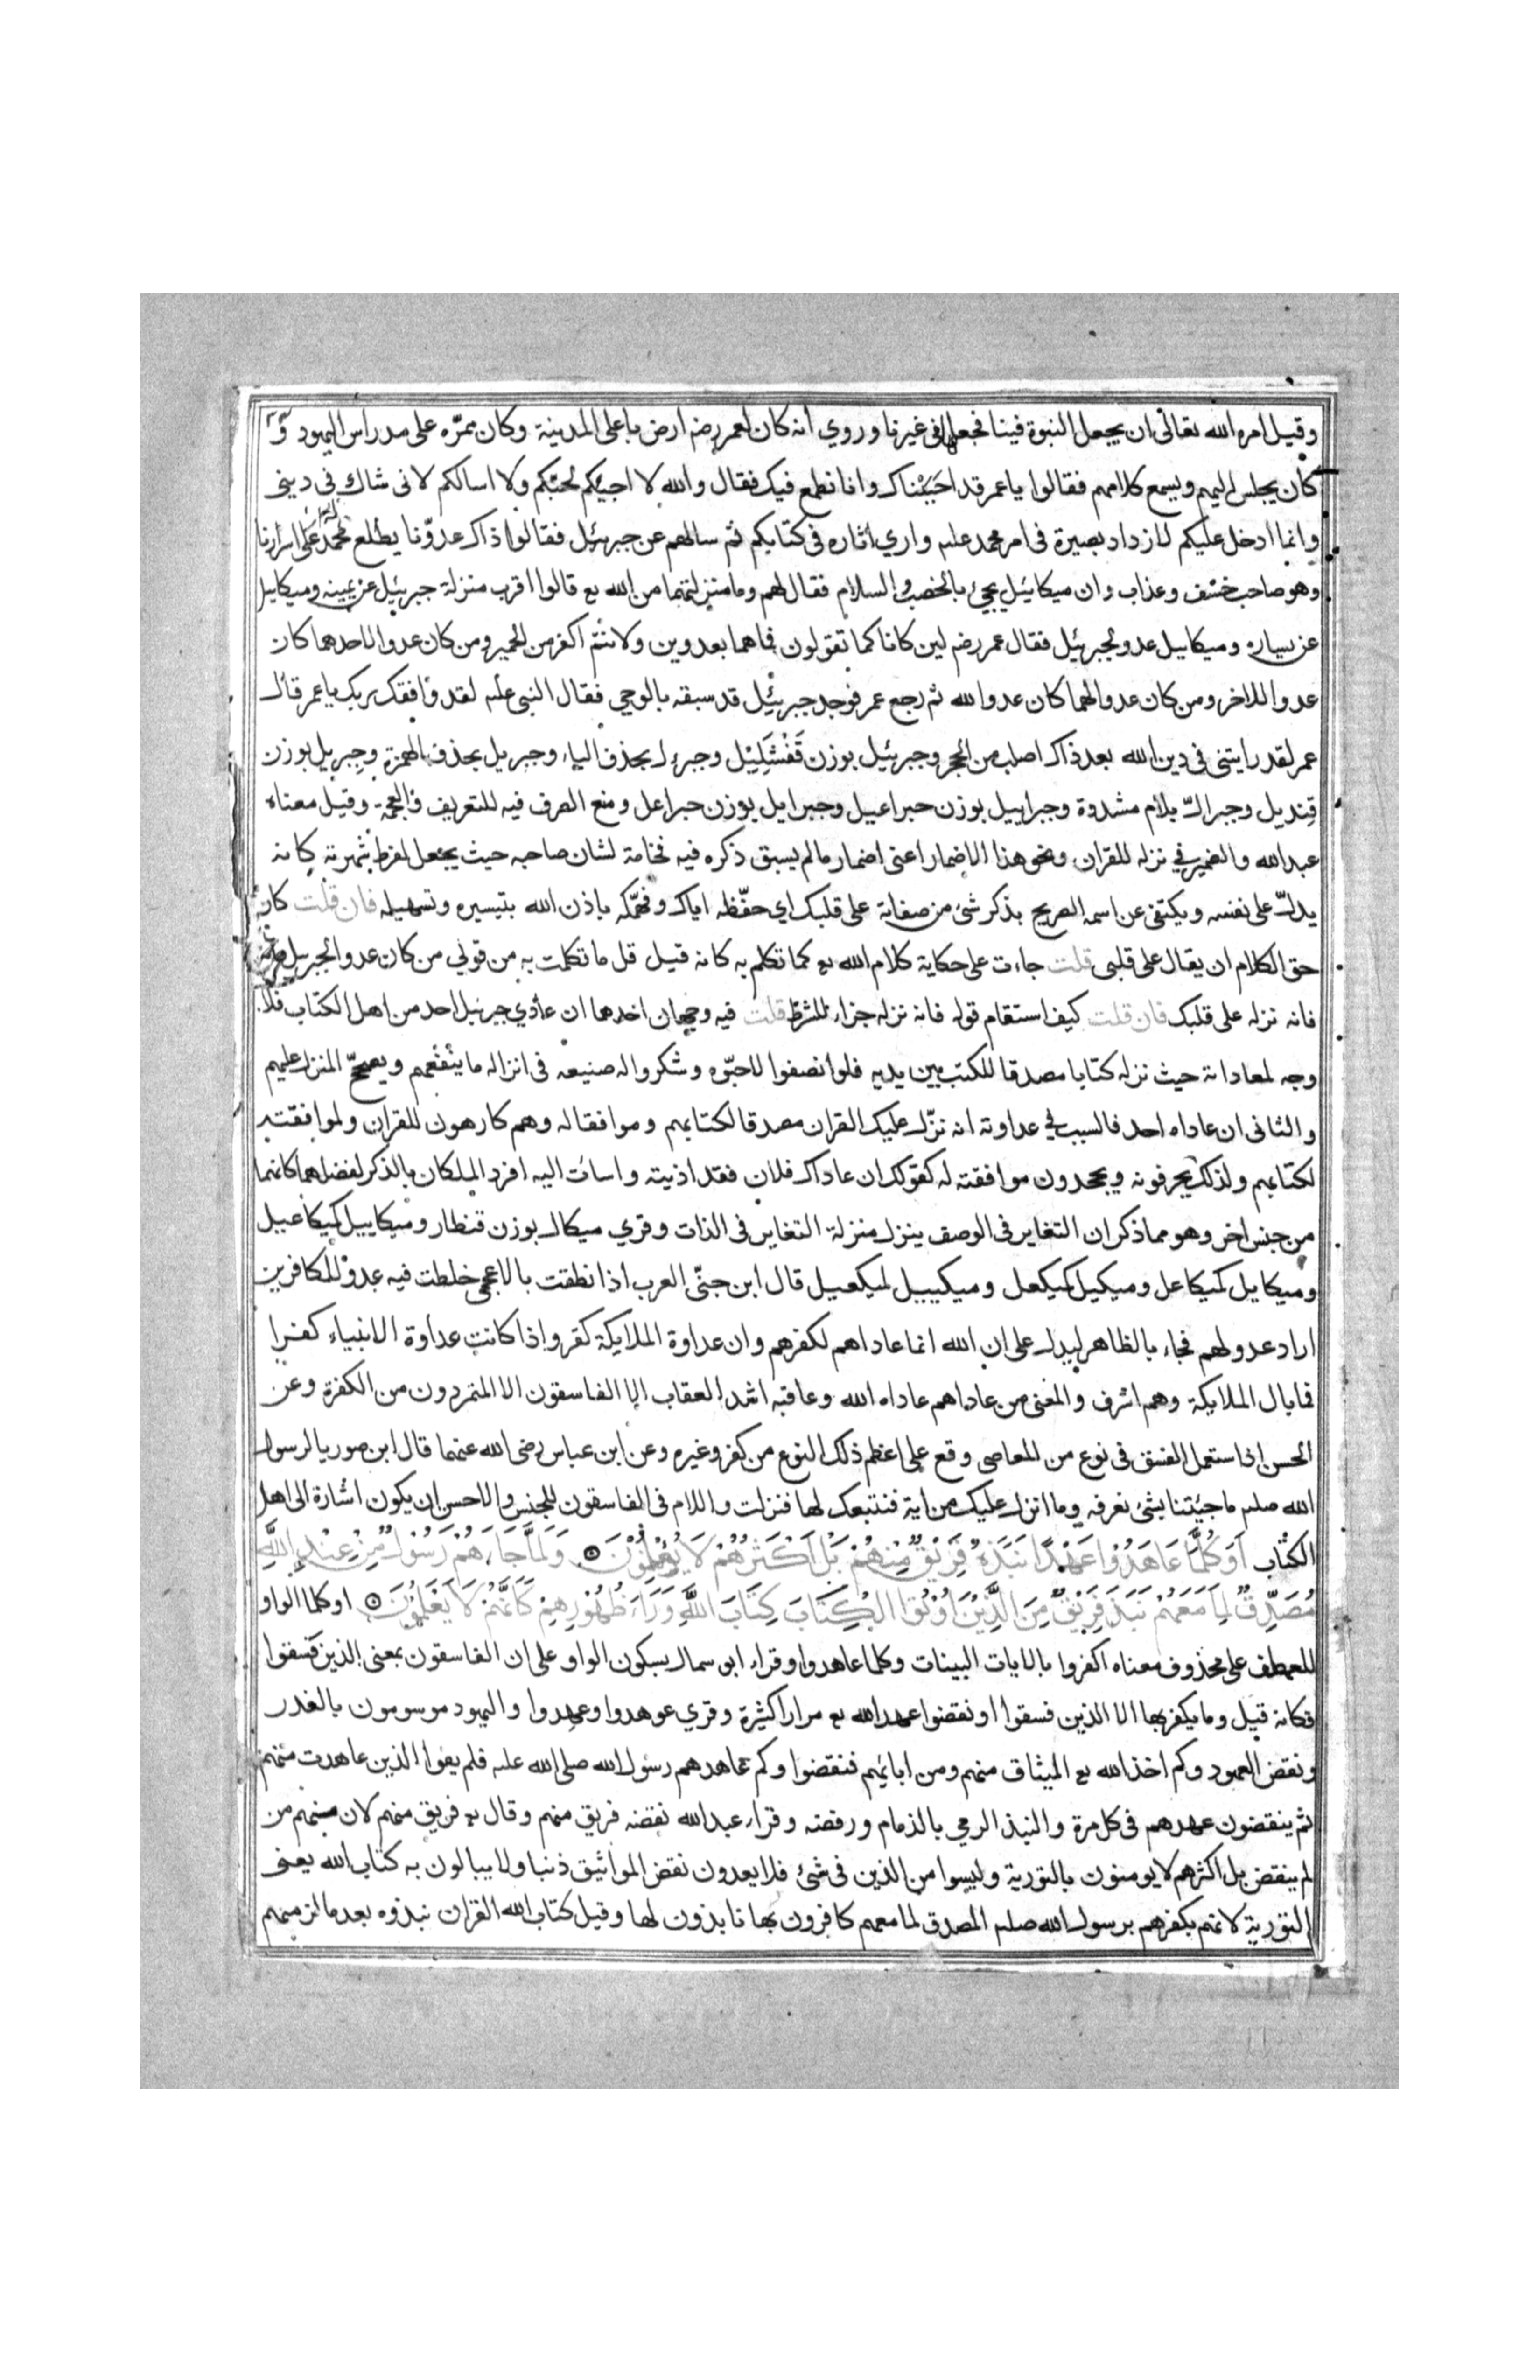 وقيل امره الله تعالى ان يجعل النبوة فينا فجعلها فى غيرنا وروي انه كان لعمر رضه ارض باعلى المدينة وكان ممرّه على مدراس اليهود و
كان يجلس اليهم ويسمع كلامهم فقالوا يا عمر قد احببناك وانا نطمع فيك فقال والله لا اجيئكم لحبّكم ولا اسالكم لانى شاك فى دينى
وانما ادخل عليكم لازداد بصيرة فى امر محمد علىه واري اثاره فى كتابكم ثم سالهم عن جبرئيل فقالوا ذاك عدوّنا يطلع محمدا على اسرارنا
وهو صاحب خسف وعذاب وان ميكائيل يجئ بالخصب والسلام فقال لهم وما منزلتهما من الله تع قالوا اقرب منزلة جبرئيل عن يمينه وميكاييل
عن يساره وميكاييل عدو لجبرئيل فقال عمر رضه لين كانا كما تقولون فما هما بعدوين ولانتم اكفر من الحمير ومن كان عدوا لاحدهما كان
عدوا للاخر ومن كان عدوا لهما كان عدوا لله ثم رجع عمر فوجد جبرئيل قد سبقه بالوحي فقال النبى علىه لقد وافقك ربك يا عمر قال
عمر لقد رايتنى فى دين الله بعد ذاك اصلب من الحجر وجبرئيل بوزن قَفْشَلِيْل وجبرءل بحذف الياء وجبريل بحذف الهمزة وجِبريل بوزن
قِنديل وجبرالّ بلام مشددة وجبراييل بوزن جبراعيل وجبرايل بوزن جبراعل ومنع الصرف فيه للتعريف والعجمة وقيل معناه
عبد الله والضمير في نزله للقران ونحو هذا الاضمار اعنى اضمار ما لم يسبق ذكره فيه فخامة لشان صاحبه حيث يجعل لفرط شهرته كانه
يدلّ على نفسه ويكتفى عن اسمه الصريح بذكر شئ من صفاته على قلبك اي حفّظه اياك وفهّمكه باذن الله بتيسيره وتسهيله فان قلت كان
حق الكلام ان يقال على قلبى قلت جاءت على حكاية كلام الله تع كما تكلم به كانه قيل قل ما تكلمت به من قولي من كان عدوا لجبريل
فانه نزله على قلبك فان قلت كيف استقام قوله فانه نزله جزاء للشرط قلت فيه وجهان احدهما ان عادي جبرئيل احد من اهل الكتاب فلا
وجه لمعاداته حيث نزله كتابا مصدقا للكتب بين يديه فلو انصفوا لاحبّوه وشكروا له صنيعه فى انزاله ما ينفعهم ويصحّح المنزل عليهم
والثانى ان عاداه احد فالسبب في عداوته انه نزّل عليك القران مصدقا لكتابهم وموافقا له وهم كارهون للقران ولموافقته
لكتابهم ولذلك يحرفونه ويجحدون موافقته له كقولك ان عاداك فلان فقد اذيته واسات اليه افرد الملكان بالذكر لفضلهما كانهما
من جنس اخر وهو مما ذكر ان التغاير فى الوصف ينزل منزلة التغاير فى الذات وقري ميكال بوزن قنطار وميكاييل كميكاعيل
وميكايل كميكاعل وميكيل كميكعل وميكييل كميكعيل قال ابن جنّى العرب اذا نطقت بالاعجمى خلطت فيه عدوٌ للكافرين
اراد عدو لهم فجاء بالظاهر ليدل على ان الله انما عاداهم لكفرهم وان عداوة الملايكة كفر واذا كانت عداوة الانبياء كفرا
فما بال الملايكة وهم اشرف والمعنى من عاداهم عاداه الله وعاقبه اشد العقاب الا الفاسقون الا المتمردون من الكفرة وعن
الحسن اذا استعمل الفسق فى نوع من المعاصى وقع على اعظم ذلك النوع من كفر وغيره وعن ابن عباس رضى الله عنهما قال ابن صوريا لرسول
الله صلىم ما جيئتنا بشئ نعرفه وما انزل عليك من اية فنتبعك لها فنزلت واللام فى الفاسقون للجنس والاحسن ان يكون اشارة الى اهل
الكتاب اَوَكُلَّمَا عَاهَدُوْا عَهْدًا نَبَذَهُ فَرِيْقٌ مِنْهُمْ بَلْ اَكْثَرُهُمْ لَا يُؤْمِنُوْنَ وَلَمَّا جَاءَهُمْ رَسُوْلٌ مِنْ عِنْدِ اللّٰهِ
مُصَدِّقٌ لِمَا مَعَهُمْ نَبَذَ فَرِيْقٌ مِنَ الَّذِيْنَ اُوْتُوْا الْكِتَابَ كِتَابَ اللّٰهِ وَرَاءَ ظُهُوْرِهِمْ كَاَنَّهُمْ لَا يَعْلَمُوْنَ اوكلما الواو
للعطف على محذوف معناه اكفروا بالايات البينات وكلما عاهدوا وقراء ابو سمال بسكون الواو على ان الفاسقون بمعنى الذين فسقوا
فكانه قيل وما يكفر بها الا الذين فسقوا او نقضوا عهد الله تع مرارا كثيرة وقري عوهدوا وعهدوا واليهود موسومون بالغدر
ونقض العهود وكم اخذ الله تع الميثاق منهم ومن ابائهم فنقضوا وكم عاهدهم رسول الله صلى الله علىه فلم يفوا الذين عاهدت منهم
ثم ينقضون عهدهم فى كل مرة والنبذ الرمي بالذمام ورفضه وقراء عبد الله نقضه فريق منهم وقال تع فريق منهم لان منهم من
لم ينقض بل اكثرهم لا يومنون بالتورية وليسوا من الذين فى شئ فلا يعدون نقض المواثيق ذنبا ولا يبالون به كتاب الله يعنى
التورية لانهم بكفرهم برسول الله صلىم المصدق لما معهم كافرون بها نابذون لها وقيل كتاب الله القران نبذوه بعد ما لزمهم